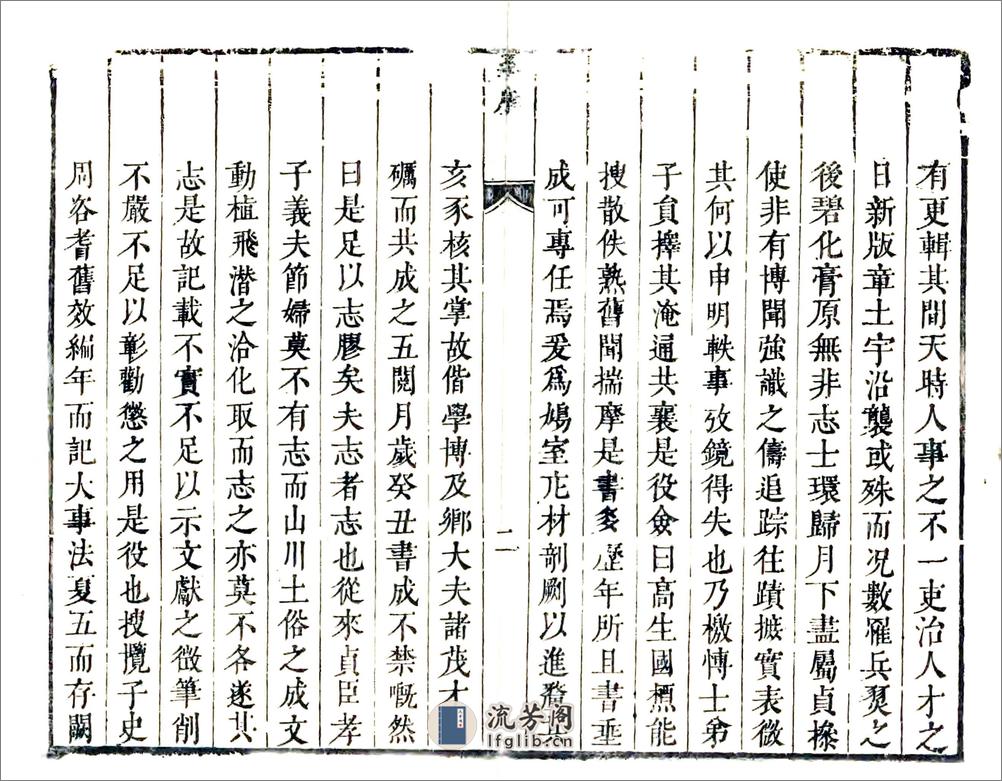 有更輯其間天時人事之不一吏治人才之
日新版章土宇沿襲或殊而况數罹兵燹之
後碧化膏原無非志士環歸月下盡屬貞操
使非有博聞強識之儔追踪往蹟摭實表微
其何以申明軼事攷鏡得失也乃檄博士弟
子員擇其淹通共襄是役僉曰高生國楹能
搜散佚熟舊聞揣摩是書多歷年所且書垂
成可專任焉爰爲塲室庀材剞劂以進
序
二
亥豕核其掌故偕學博及鄉大夫諸茂才
礪而共成之五閱月歲癸丑書成不禁嘅然
曰是足以志膠矣夫志者志也從來貞臣孝
子義夫節婦莫不有志而山川土俗之成文
動植飛潛之洽化取而志之亦莫不各遂其
志是故記載不實不足以示文獻之徵筆削
不嚴不足以彰勸懲之用是役也搜攬子史
周咨耆舊效編年而記大事法夏五而存闕
流芳阁
lfglib.com